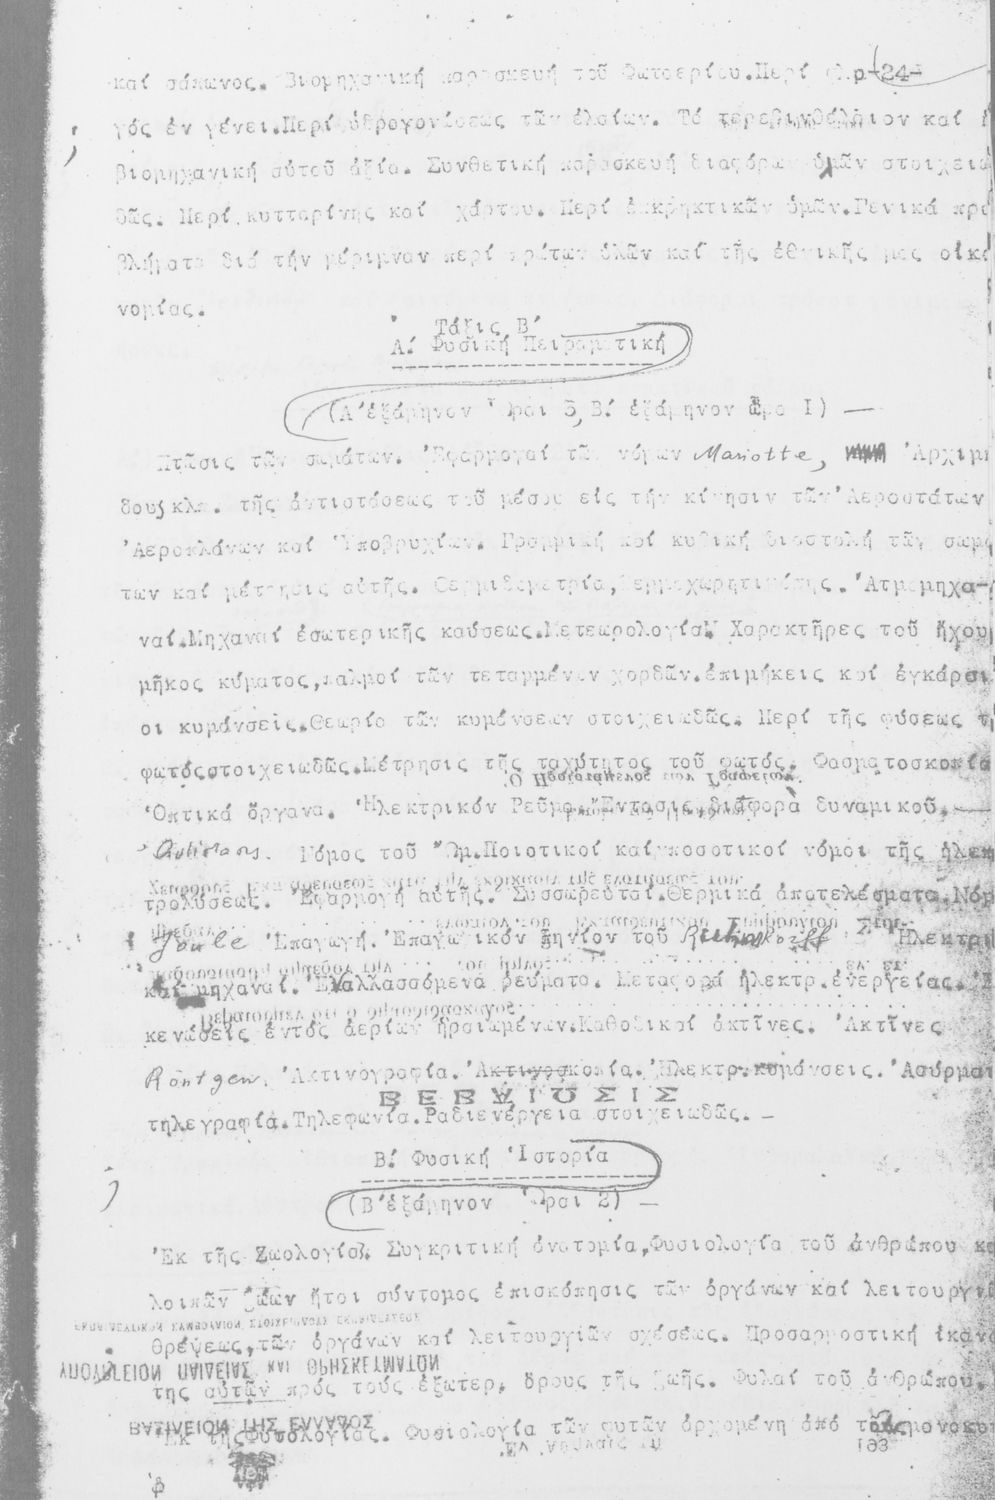 -24-
καί σάπωνος. Βιομηχανική παρασκευή τοῦ Φωταερίου.Περί
γός ἐν γένει.Περί ὑδρογονώσεως τῶν ἐλαίων. Τό τερεβινθέλαιον καί ἡ
βιομηχανική αὐτοῦ ἀξία. Συνθετική παρασκευή διαφόρων ὑλῶν στοιχειω
δῶς. Περί κυτταρίνης καί χάρτου. Περί ἐκρηκτικῶν ὑλῶν.Γενικά προ
βλήματα διά τήν μέριμναν περί πρώτων ὑλῶν καί τῆς ἐθνικῆς μας οἰκο
νομίας.
Τάξις Β΄
Α΄ Φυσική Πειραματική
(Α΄ἑξάμηνον Ὧραι 3, Β΄ ἑξάμηνον ὥρα 1) —
Πτῶσις τῶν σωμάτων. Ἐφαρμογαί τῶν νόμων Mariotte, Ἀρχιμή
δους κλπ. τῆς ἀντιστάσεως τοῦ μέσου εἰς τήν κίνησιν τῶν Ἀεροστάτων
Ἀεροπλάνων καί Ὑποβρυχίων. Γραμμική καί κυβική διαστολή τῶν σωμά
των καί μέτρησις αὐτῆς. Θερμιδομετρία, θερμοχωρητικότης. Ἀτμομηχα-
ναί.Μηχαναί ἐσωτερικῆς καύσεως.Μετεωρολογία. Χαρακτῆρες τοῦ ἤχου
μῆκος κύματος,παλμοί τῶν τεταμμένων χορδῶν.ἐπιμήκεις καί ἐγκάρσι
οι κυμάνσεις.Θεωρία τῶν κυμάνσεων στοιχειωδῶς. Περί τῆς φύσεως τ
φωτός στοιχειωδῶς.Μέτρησις τῆς ταχύτητος τοῦ φωτός. Φασματοσκοπία
Ὀπτικά ὄργανα. Ἠλεκτρικόν Ρεῦμα.Ἔντασις,διαφορά δυναμικοῦ, —
Νόμος τοῦ Ὤμ.Ποιοτικοί καί ποσοτικοί νόμοι τῆς ἠλεκ
τρολύσεως. Ἐφαρμογή αὐτῆς. Συσσωρευταί.Θερμικά ἀποτελέσματα.Νόμ
Joule Ἐπαγωγή. Ἐπαγωγικόν πηνίον τοῦ Ruhmkorff. Ἠλεκτρι
καί μηχαναί. Ἐναλλασσόμενα ρεύματα. Μεταφορά ἠλεκτρ.ἐνεργείας.
κενώσεις ἐντός ἀερίων ἠραιωμένων.Καθοδικαί ἀκτῖνες. Ἀκτῖνες
Röntgen. Ἀκτινογραφία.Ἀκτινοσκοπία.Ἠλεκτρ.κυμάνσεις.Ἀσύρματ
ΒΕΒΑΙΩΣΙΣ
τηλεγραφία.Τηλεφωνία.Ραδιενέργεια στοιχειωδῶς. —
Β΄ Φυσική Ἱστορία
(Β΄ἑξάμηνον Ὧραι 2) —
Ἐκ τῆς Ζωολογίας. Συγκριτική ἀνατομία,Φυσιολογία τοῦ ἀνθρώπου κα
λοιπῶν ζώων ἤτοι σύντομος ἐπισκόπησις τῶν ὀργάνων καί λειτουργι
θρέψεως,τῶν ὀργάνων καί λειτουργιῶν σχέσεως. Προσαρμοστική ἱκανό
ΥΠΟΥΡΓΕΙΟΝ ΠΑΙΔΕΙΑΣ ΚΑΙ ΘΡΗΣΚΕΥΜΑΤΩΝ
της αὐτῶν πρός τούς ἐξωτερ. ὅρους τῆς ζωῆς. Φυλαί τοῦ ἀνθρώπου.
ΒΑΣΙΛΕΙΟΝ ΤΗΣ ΕΛΛΑΔΟΣ
Ἐκ τῆς Φυτολογίας. Φυσιολογία τῶν φυτῶν ἀρχομένη ἀπό τούς μονοκυ